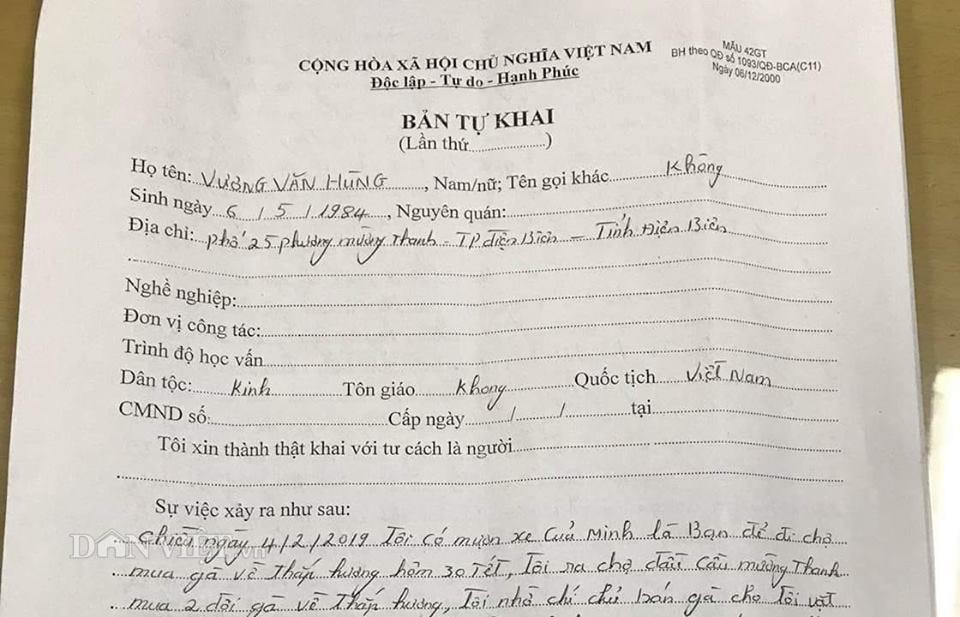 CỘNG HÒA XÃ HỘI CHỦ NGHĨA VIỆT NAM
Độc lập - Tự do - Hạnh Phúc
MẪU 42GT
BH theo QĐ số 1093/QĐ-BCA(C11)
Ngày 06/12/2000
BẢN TỰ KHAI
(Lần thứ...............)
Họ tên: VƯƠNG VĂN HÙNG, Nam/nữ; Tên gọi khác Không
Sinh ngày 6 / 5 / 1984, Nguyên quán:
Địa chỉ: phố 25 phường mường Thanh - TP điện Biên - Tỉnh Điện Biên
Nghề nghiệp:
Đơn vị công tác:
Trình độ học vấn
Dân tộc: Kinh Tôn giáo Khong Quốc tịch Việt Nam
CMND số: Cấp ngày / / tại
Tôi xin thành thật khai với tư cách là người
Sự việc xảy ra như sau:
Chiều ngày 4/2/2019 Tôi có mượn xe Của Minh là Bạn để đi chợ
mua gà về Thắp hương hôm 30 TẾT, Tôi ra chợ đầu Cầu mường Thanh
mua 2 đôi gà về Thắp hương, Tôi nhờ chí chủ bán gà cho Tôi vặt
DÂN VIỆT.vn